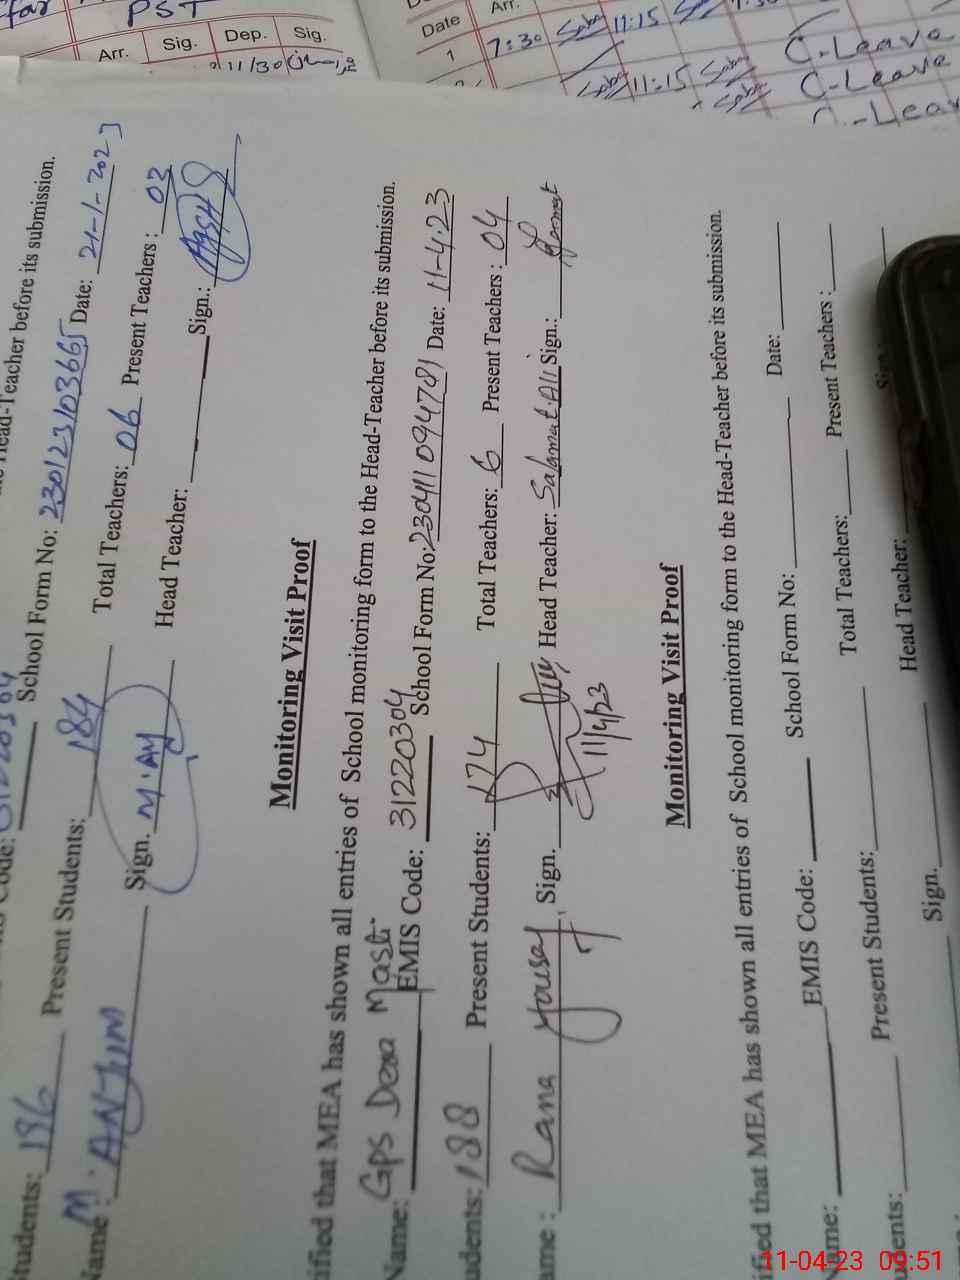 PST
Arr. Sig. Dep. Sig.
11/30
Date Arr.
1 7:30 11:15 C-Leave
11:15 C-Leave
Head-Teacher before its submission.
School Form No: 230123103665 Date: 21-1-2023
tudents: 196 Present Students: 184 Total Teachers: 06 Present Teachers : 03
Name : M. ANJUM Sign. Head Teacher: Sign.:
Monitoring Visit Proof
ified that MEA has shown all entries of School monitoring form to the Head-Teacher before its submission.
Name: GPS Dera Masti EMIS Code: 31220304 School Form No: 230411094781 Date: 11-4-23
udents: 188 Present Students: 174 Total Teachers: 6 Present Teachers : 04
ame : Rana Yousaf Sign. 11/4/23 Head Teacher: Salamat Ali Sign.:
Monitoring Visit Proof
ified that MEA has shown all entries of School monitoring form to the Head-Teacher before its submission.
ame: EMIS Code: School Form No: Date:
udents: Present Students: Total Teachers: Present Teachers :
Sign. Head Teacher: Sign.:
11-04-23 09:51